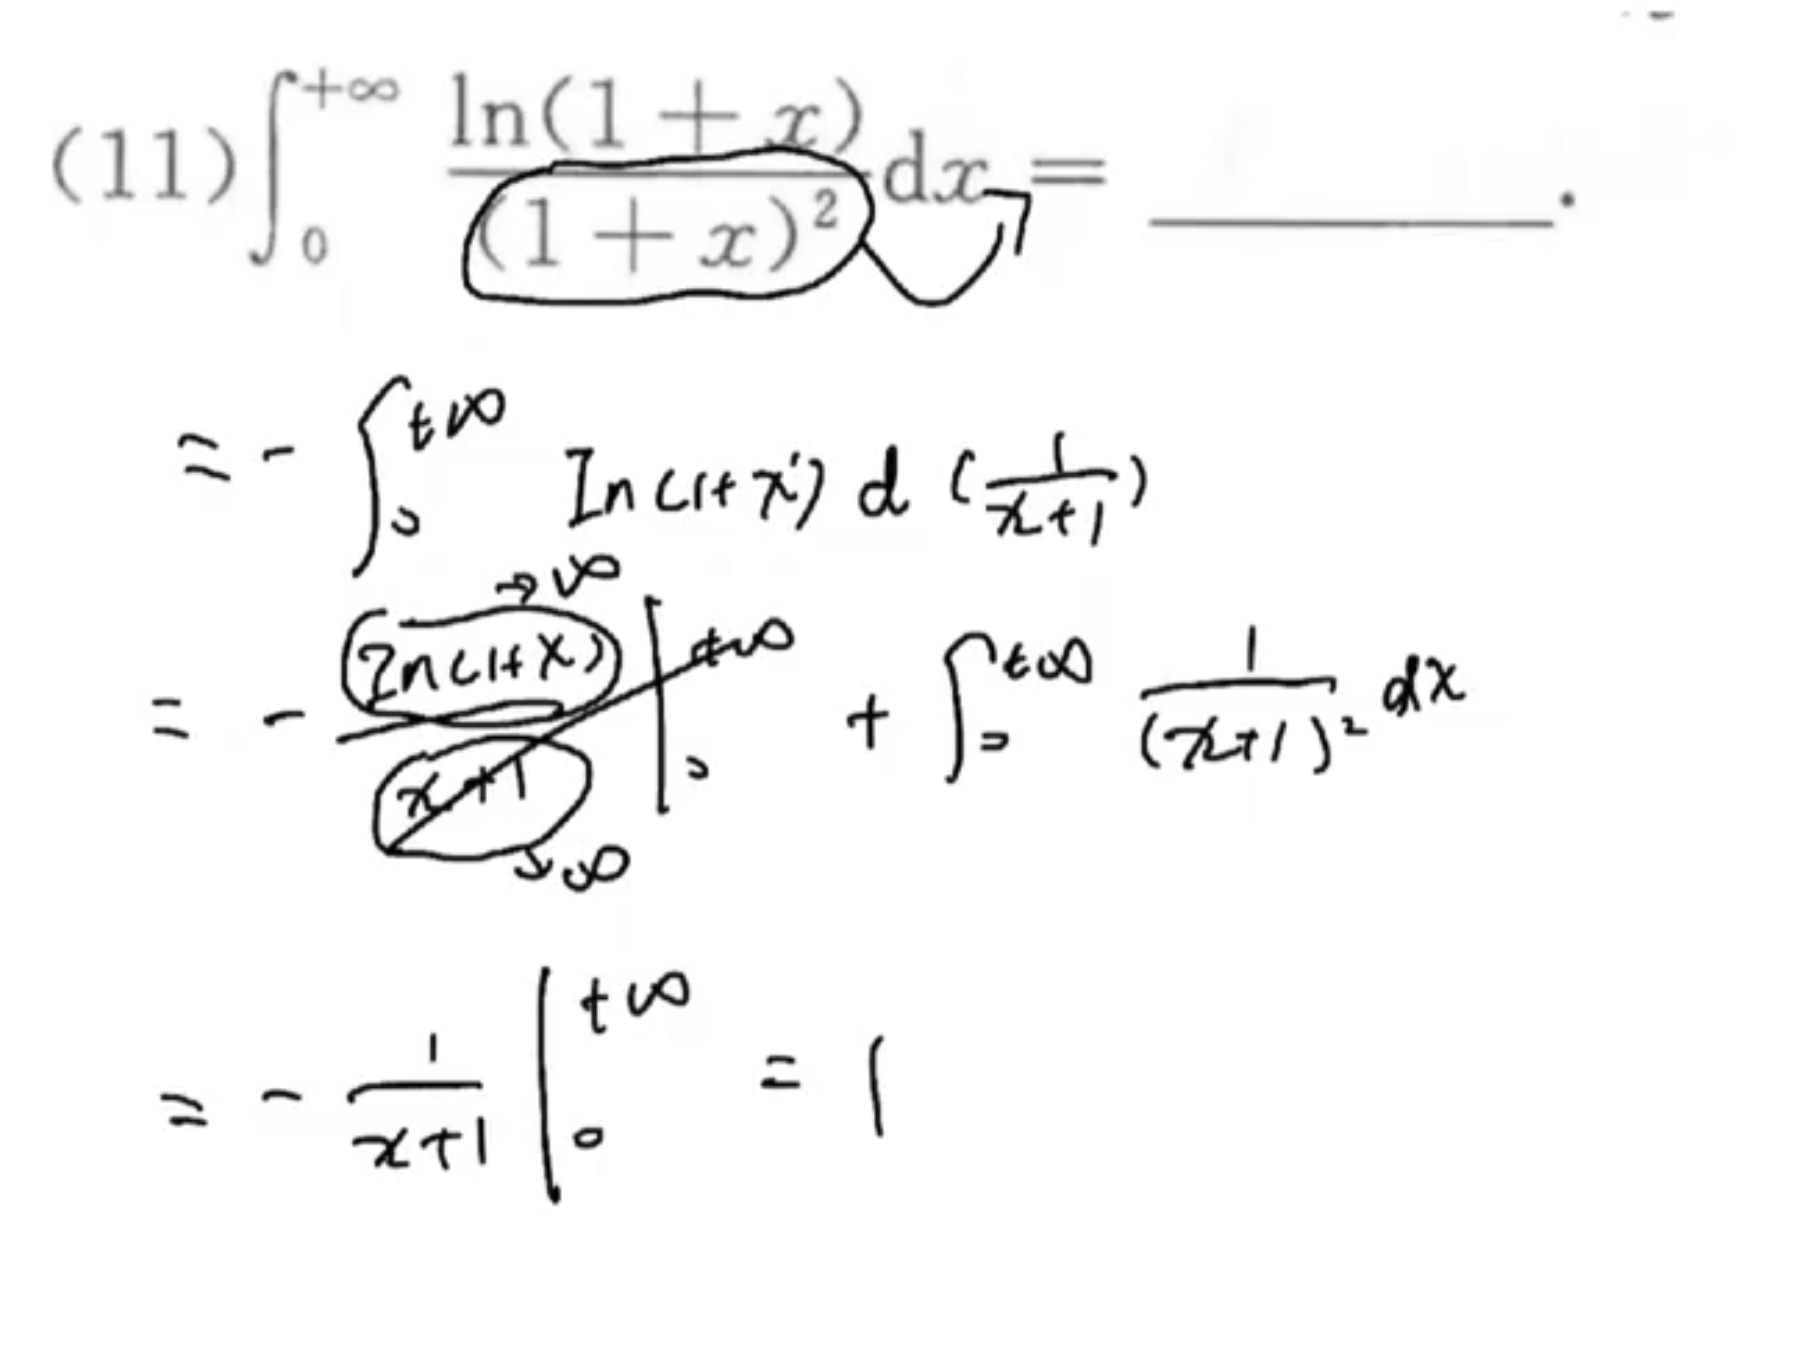 (11) ∫₀^{+∞} ln(1+x)/(1+x)² dx = ________.
= - ∫₀^{+∞} ln(1+x) d(1/(x+1))
= - ln(1+x)/(x+1) |₀^{+∞} + ∫₀^{+∞} 1/(x+1)² dx
→∞
→∞
= - 1/(x+1) |₀^{+∞} = 1